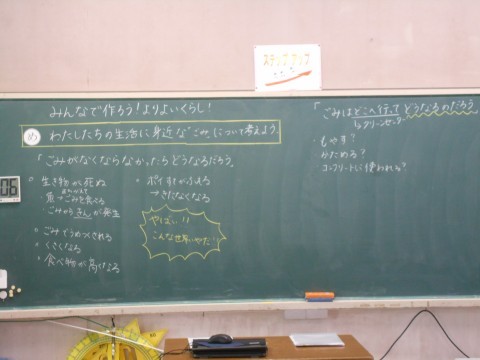 ステップアップ
みんなで作ろう!よりよいくらし!
め わたしたちの生活に身近な"ごみ"について考えよう。
「ごみがなくならなかったらどうなるだろう。
。生き物が死ぬ
まちがえて
魚→ごみを食べる
ごみからきんが発生
。ごみでうめつくされる
。くさくなる
。食べ物が高くなる
。ポイすてがふえる
→きたなくなる
やばい!!
こんな世界いやだ!!
「ごみはどこへ行ってどうなるのだろう。
↳クリーンセンター
。もやす?
かためる?
コンクリートに使われる?
06